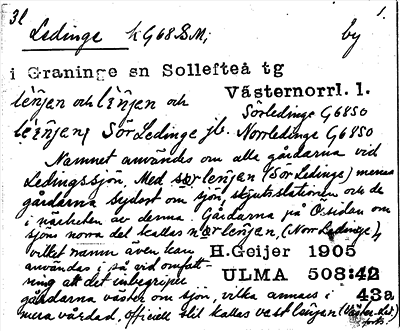 3l 1.
Ledinge k G68SM; by
i Graninge sn Sollefteå tg
Västernorrl. l.
lèńjen och lìńjen och Sörledinge G6850
lèińjen, Sör Ledinge jb. Norrledinge G6850
Namnet användes om alla gårdarna vid
Ledingssjön. Med særlenjen (Sör Ledinge) menas
gårdarna sydost om sjön, skjutsstationen och de
i närheten av denna. Gårdarna på Ö sidan om
sjöns norra del kallas nærlenjen, (Norr Ledinge),
vilket namn även kan H. Geijer 1905
användas i på vid omfatt- ULMA 508:42
ning att det inbegriper 43a
gårdarna väster om sjön, vilka annars i
mera vårdad, officiell stil kallas väst